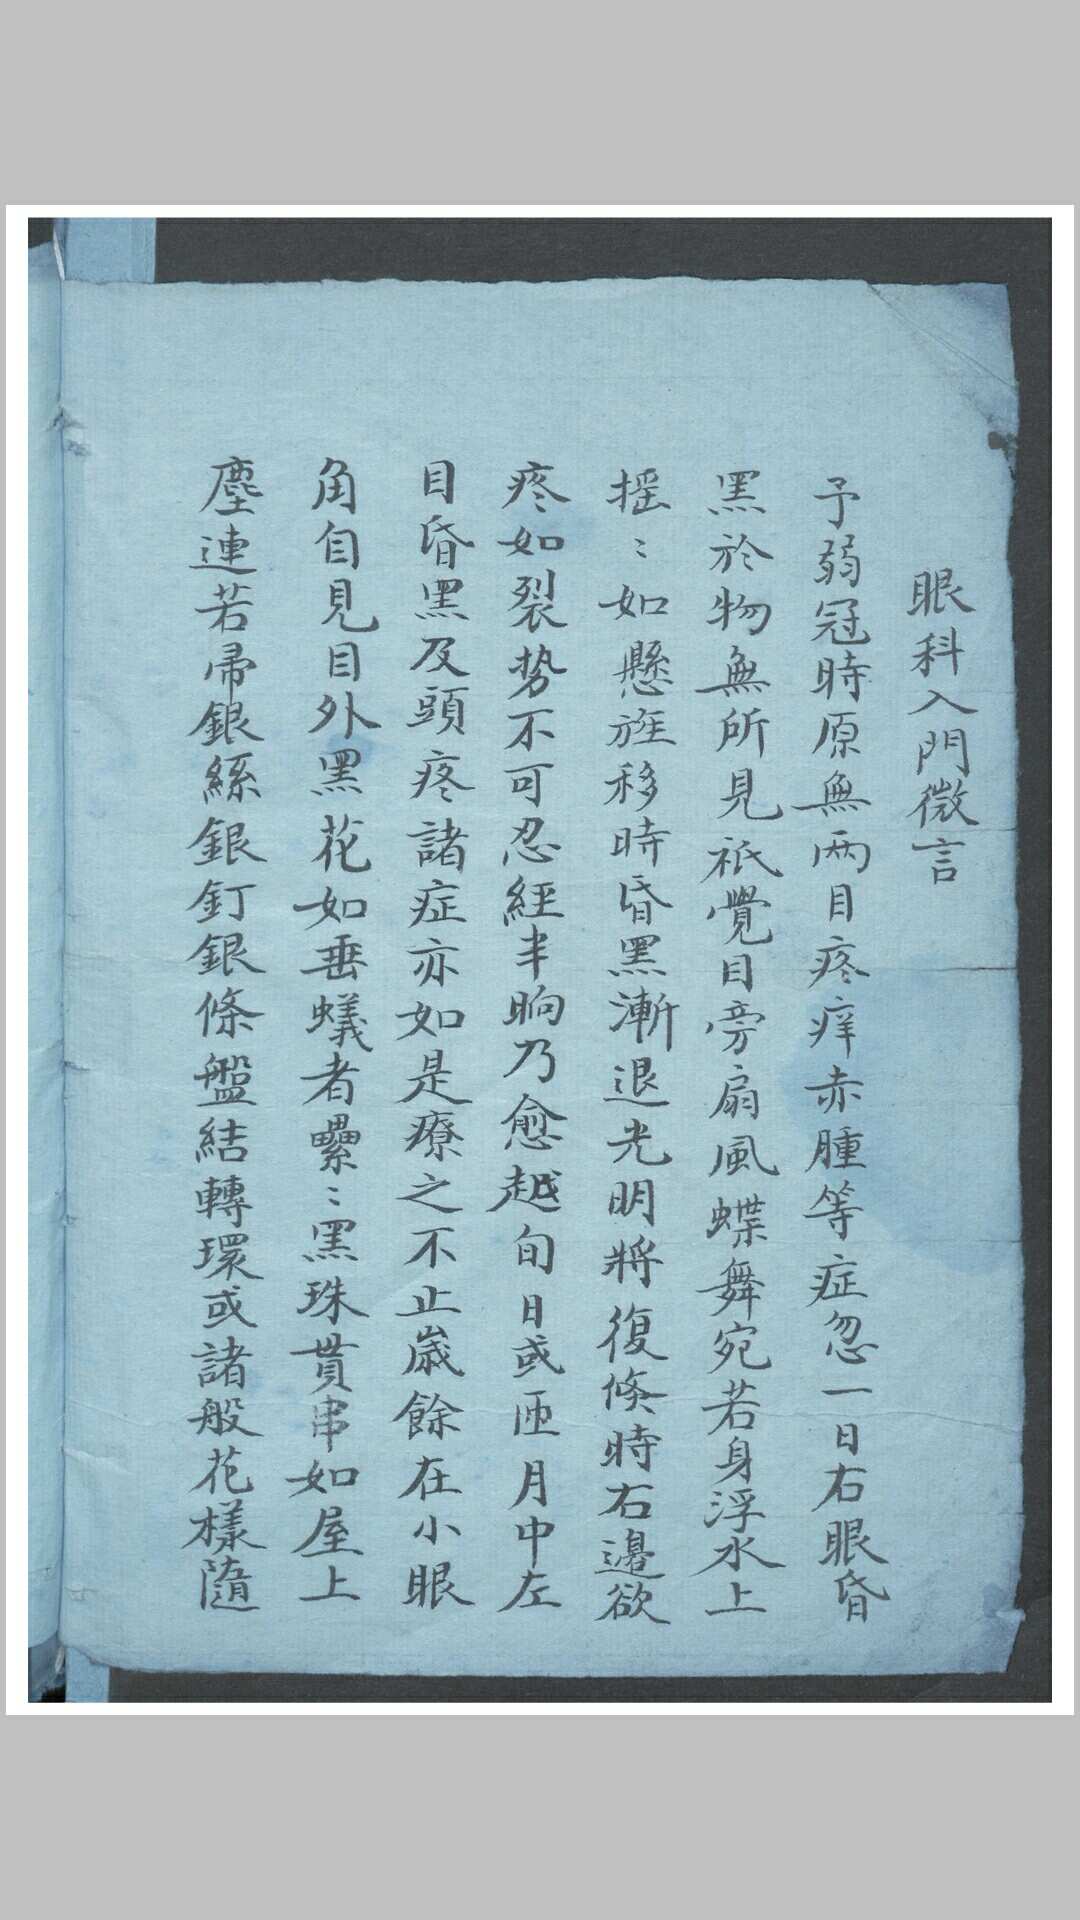 眼科入門微言
予弱冠時原無兩目疼痒赤腫等症忽一日右眼昏
黑於物無所見祇覺目旁扇風蝶舞宛若身浮水上
搖〻如懸旌移時昏黑漸退光明將復倏時右邊欲
疼如裂势不可忍經半晌乃愈越旬日或匝月中左
目昏黑及頭疼諸症亦如是療之不止歲餘在小眼
角自見目外黑花如垂蟻者纍〻黑珠貫串如屋上
塵連若帚銀絲銀釘銀條盤結轉環或諸般花樣隨